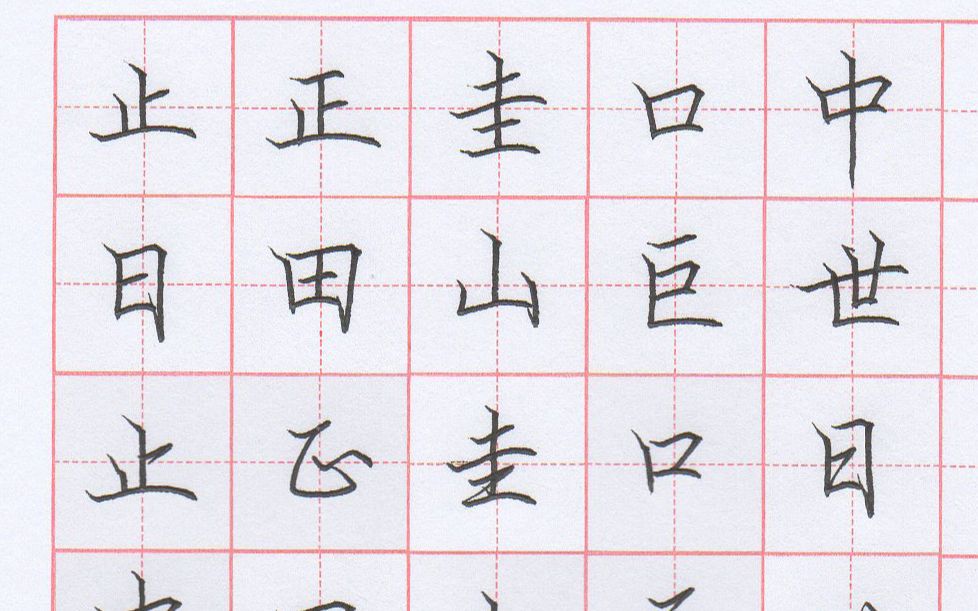 止正圭口中
日田山巨世
止正圭口日